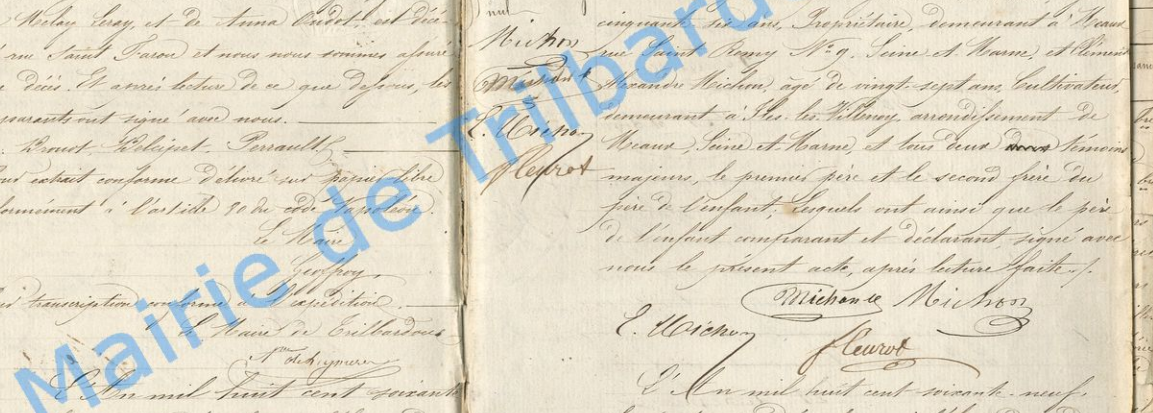 Melay Leroy et de Anna Oudot est décé-
rue Saint Faron et nous nous sommes assuré
décès. Et après lecture de ce que dessus, les
parants ont signé avec nous.
Perrault
our extrait conforme délivré sur papier libre
formément à l'article 80 du code Napoléon.
Le Maire
Geoffroy,
transcription conforme à l'expédition.
Le Maire de Trilbardou
L'An mil huit cent soixante
Michon
Michon
E. Michon
fleurot
cinquante six ans, Propriétaire, demeurant à Meaux
rue Saint Remy N° 9. Seine et Marne, et Clément
Alexandre Michon, âgé de vingt-sept ans, Cultivateur,
demeurant, à Isles-les-Villenoy, arrondissement de
Meaux, Seine et Marne, et tous deux témoins
majeurs, le premier père et le second frère du
père de l'enfant. Lesquels ont ainsi que le père
de l'enfant comparant et déclarant, signé avec
nous le présent acte, après lecture faite.
Michon Michon
E. Michon
fleurot
L'An mil huit cent soixante-neuf,
Mairie de Trilbardou